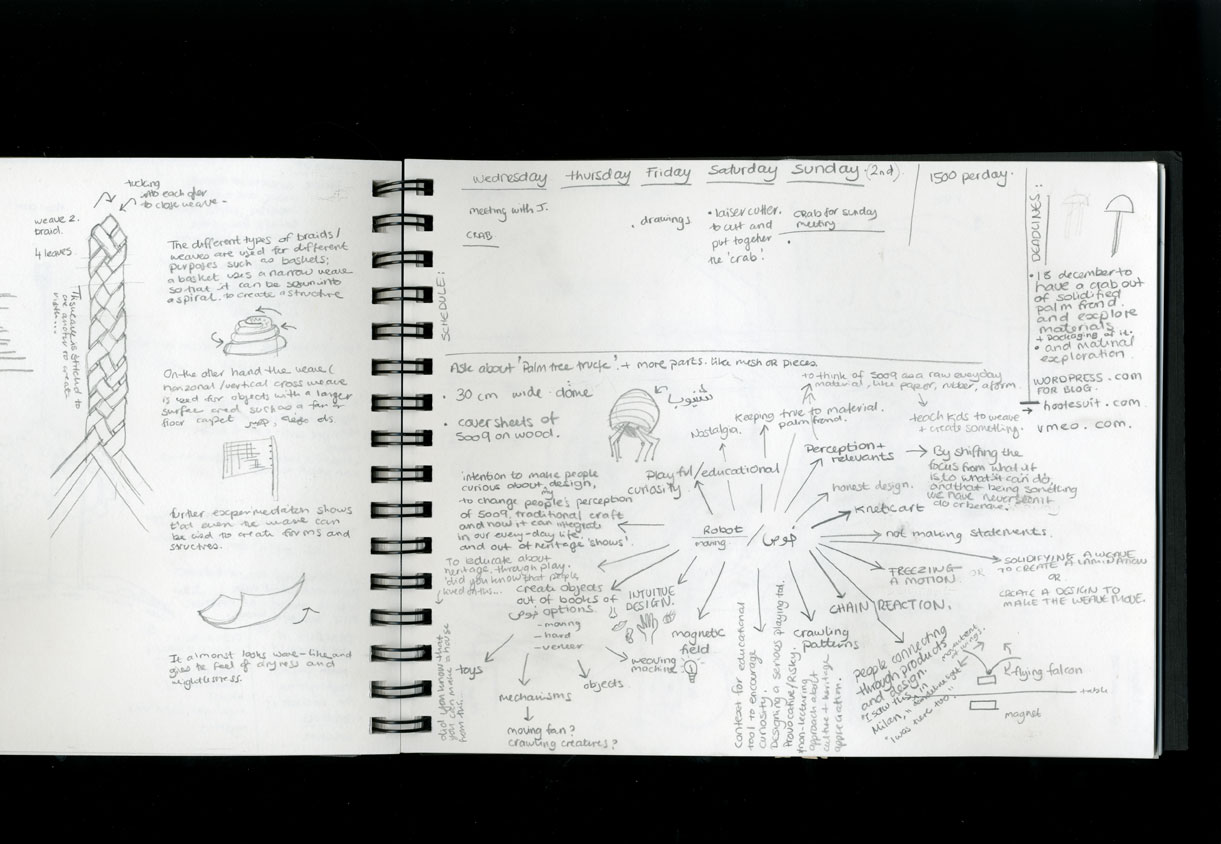 tucking
into each other
to close weave -
weave 2.
braid.
4 leaves
The different types of braids/
weaves are used for different
purposes such as baskets;
a basket uses a narrow weave
so that it can be sewn into
a spiral to create a structure
On the other hand the weave (
horizonal/vertical cross weave
is used for objects with a larger
surface area such as a fan or
floor carpet
further experimentation shows
that even the weave can
be used to create forms and
structres.
It almost looks wave-like and
gives the feel of dryness and
weightlessness.
SCHEDULE:
Wednesday
Thursday
Friday
Saturday
Sunday (2nd)
1500 per day.
meeting with J.
CRAB
drawings
• laiser cutter.
to cut and
put together
the 'crab'!
CRAB for Sunday
meeting
DEADLINES:
• 18 december to
have a crab out
of solidified
palm frond.
and explore
materials
+ packaging of it.
• and material
exploration.
WORDPRESS.com
FOR BLOG.
→ hootesuit.com.
vmeo.com.
Ask about 'Palm tree truck', + more parts. like mesh or pieces.
• 30 cm wide dome
• cover sheets of
5009 on wood.
to think of 5009 as a raw everyday
material, like paper, rubber, a form.
teach kids to weave
+ create something.
Keeping true to material.
palm frond.
Nostalgia.
Playful/educational
curiosity
Perception +
relevants
By shifting the
focus from what it
is to what it can do,
and that being something
we have never seen it
do or behave.
honest design.
Knetcart
not making statements.
FREEZING
A MOTION.
OR
SOLIDIFYING A WEAVE
TO CREATE A LAMINATION
OR.
CREATE A DESIGN TO
MAKE THE WEAVE MOVE.
CHAIN REACTION.
Robot
moving
خوص
intention to make people
curious about design,
to change people's perception
of 5009, traditional craft
and how it can integrate
in our every-day life.
and out of heritage 'shows'.
To educate about
heritage, through play.
'did you know that people
lived in this...
did you know that
you can make a house
from this...
create objects
out of books of
خوص options.
- moving
- hard
- veneer
INTUITIVE
DESIGN.
toys
mechanisms
moving fan?
crawling creatures?
objects
weaving
machine
magnetic
field
Context for educational
tool to encourage
curiosity.
Designing a serious playing tool.
Provocative/Risky.
non-lecturing
approach about
culture + heritage
appreciation.
crawling
patterns
people connecting
through products
and design.
"I saw this in
Milan,"
"I was here too,"
movement
of wings.
flying falcon
table
magnet